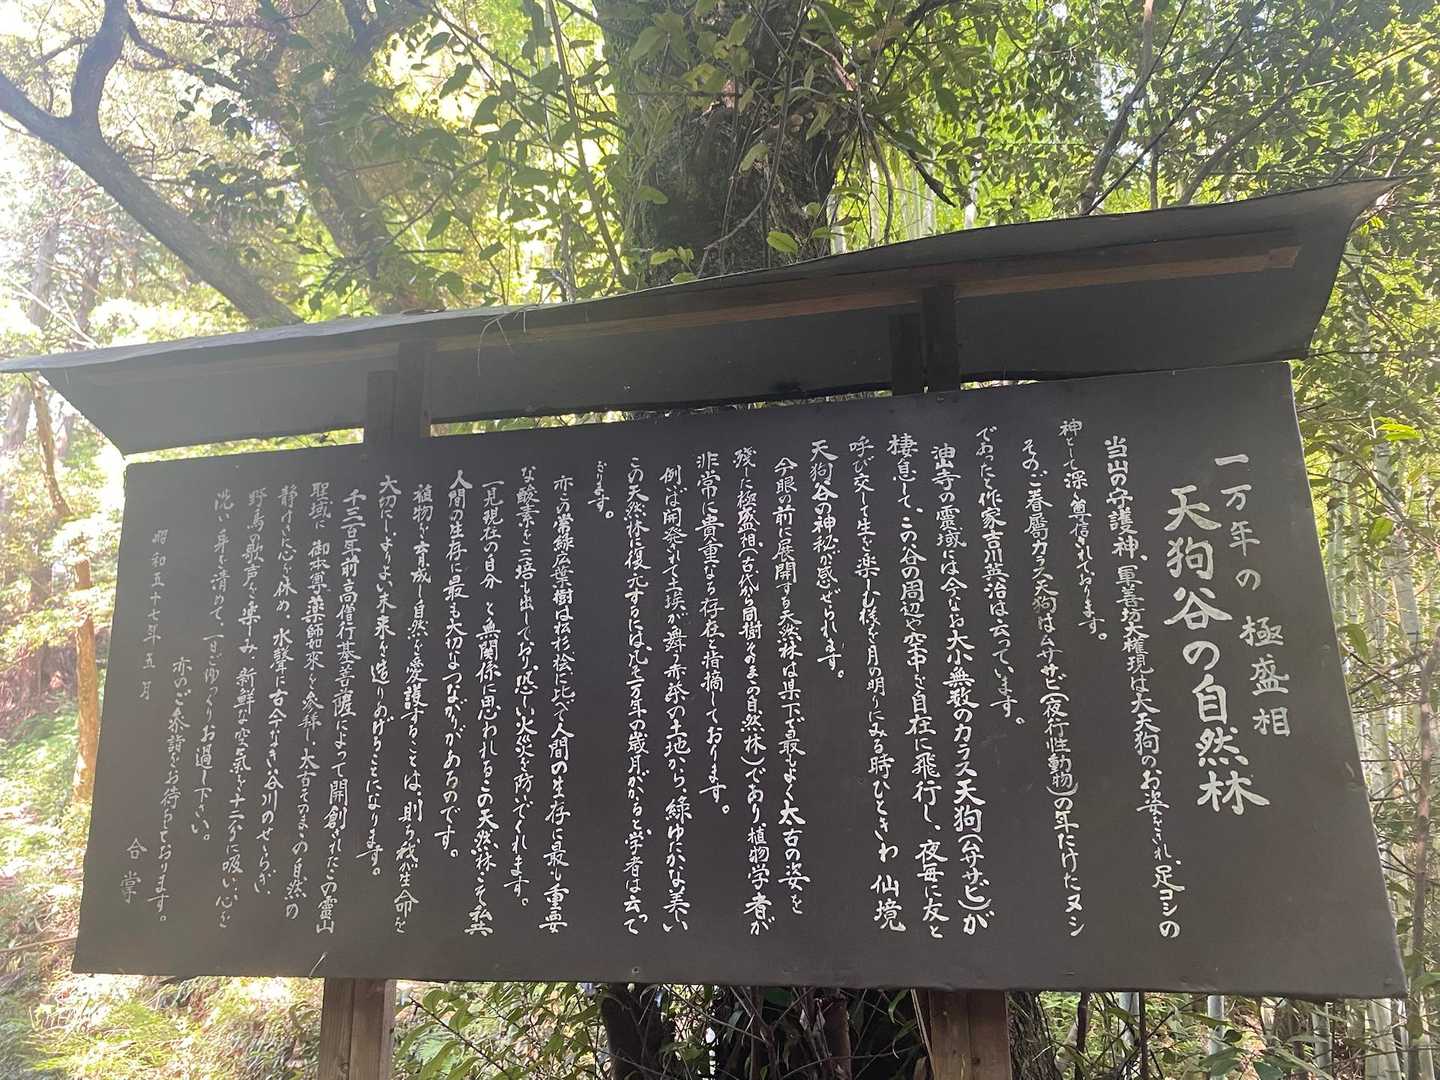 一万年の極盛相
天狗谷の自然林
当山の守護神、軍善坊大権現は大天狗のお姿をされ、足コシの
神として深く信されております。
そのご眷属カラス天狗はムササビ(夜行性動物)の年たけたヌシ
であったと作家吉川英治は云っています。
油山寺の霊域には今なお大小無数のカラス天狗(ムササビ)が
棲息して、この谷の周辺や空中を自在に飛行し、夜毎に友と
呼び交して生を楽しむ様を月の明りにみる時ひときわ仙境
天狗谷の神秘が感ぜられます。
今眼の前に展開する天然林は県下で最もよく太古の姿を
残した極盛相(古代から同樹そのまゝの自然林)であり、植物学者が
非常に貴重なる存在と指摘しております。
例ば開発されて土埃が舞う赤茶の土地から、緑ゆたかな美しい
この天然林に復元するには、凡そ一万年の歳月がかかると学者は云って
おります。
亦この常緑広葉樹は松杉桧に比べて人間の生存に最も重要
な酸素を三倍も出しており、恐しい火災を防いでくれます。
一見現在の自分と無関係に思われるこの天然林こそ私共
人間の生存に最も大切なつながりがあるのです。
植物を育成し自然を愛護することは、則ち我が生命を
大切にしよりよい未来を造りあげることになります。
千三百年前高僧行基菩薩によって開創されたこの霊山
聖域に御本尊薬師如来を参拝し、太古そのまゝの自然の
静けさに心を休め、水聲に古今なき谷川のせゝらぎ、
野鳥の歌声を楽しみ、新鮮な空気を十二分に吸い、心を
洗い身を清めて、一日ごゆっくりお過し下さい。
亦のご参詣をお待ちしております。
合掌
昭和五十七年五月